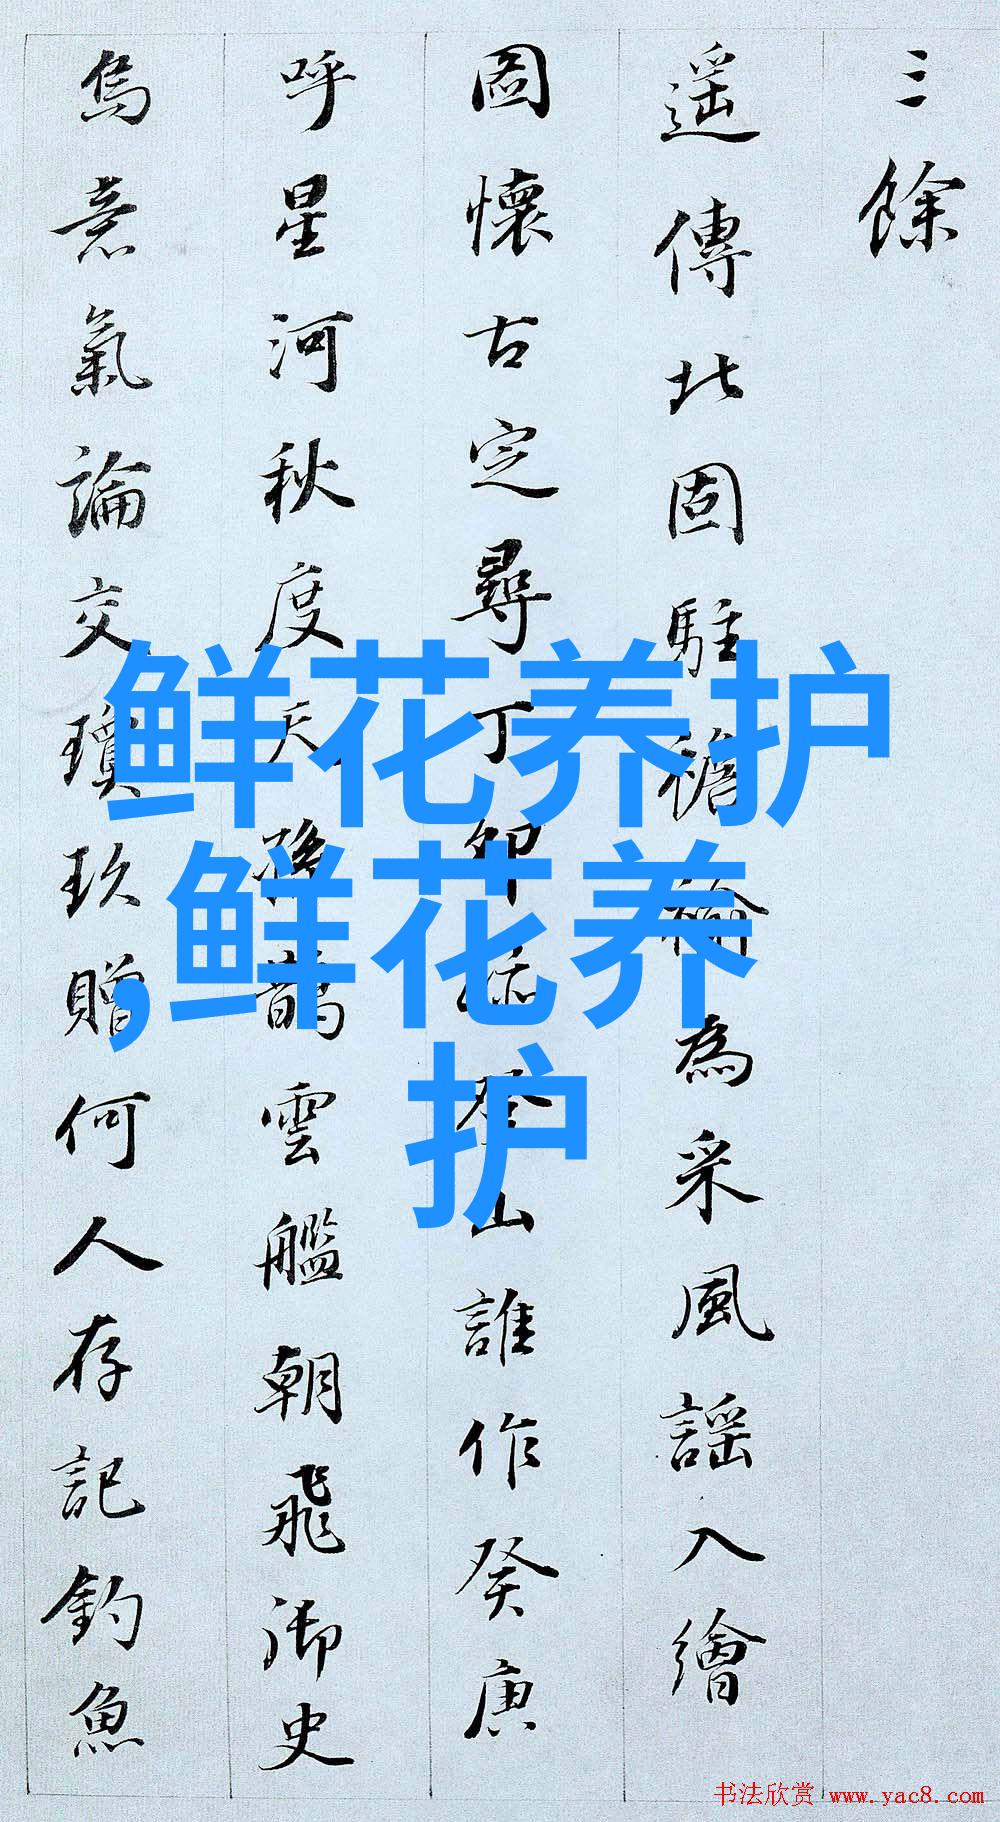 三餘
遥傳北固駐襜褕為采風謡入繪
圖懷古定尋丁卯登山誰作癸庚
呼星河秋度天孫鵲雲艦朝飛御史
烏意氣論交瓊玖贈何人存記釣魚
鲜花养护
,鲜花养
护
书法欣赏 www.yac8.com